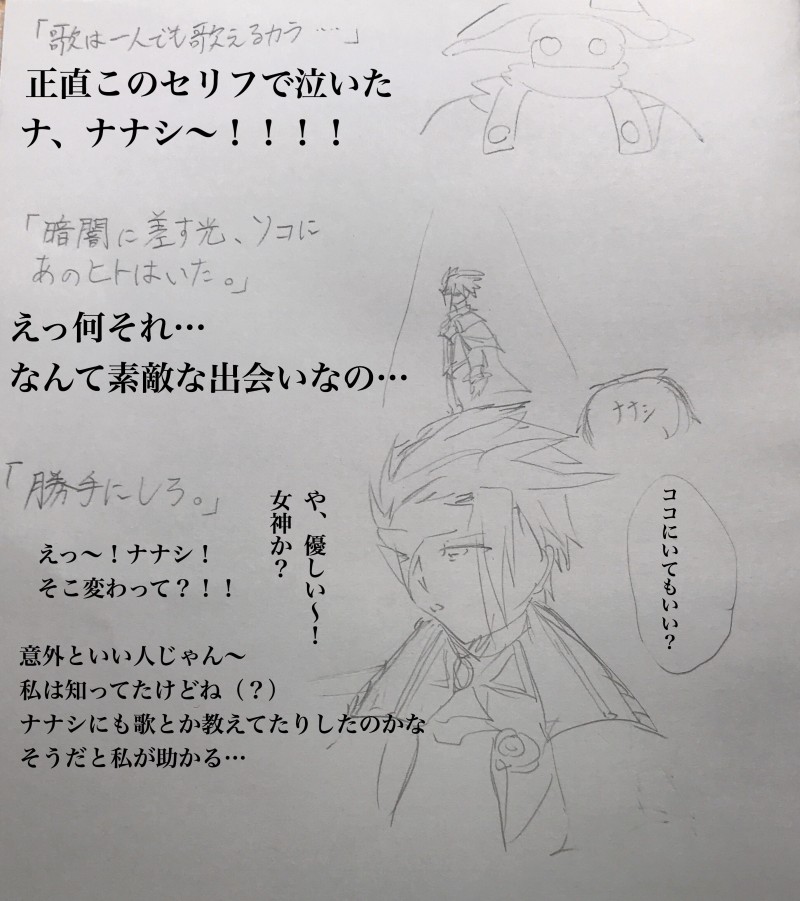 「歌は一人でも歌えるカラ……」
正直このセリフで泣いた
ナ、ナナシ～！！！！
「暗闇に差す光、ソコに
あのヒトはいた。」
えっ何それ…
なんて素敵な出会いなの…
ナナシ
ココにいてもいい？
「勝手にしろ。」
や、優しい～！
女神か？
えっ～！ナナシ！
そこ変わって？！！
意外といい人じゃん～
私は知ってたけどね（？）
ナナシにも歌とか教えてたりしたのかな
そうだと私が助かる…